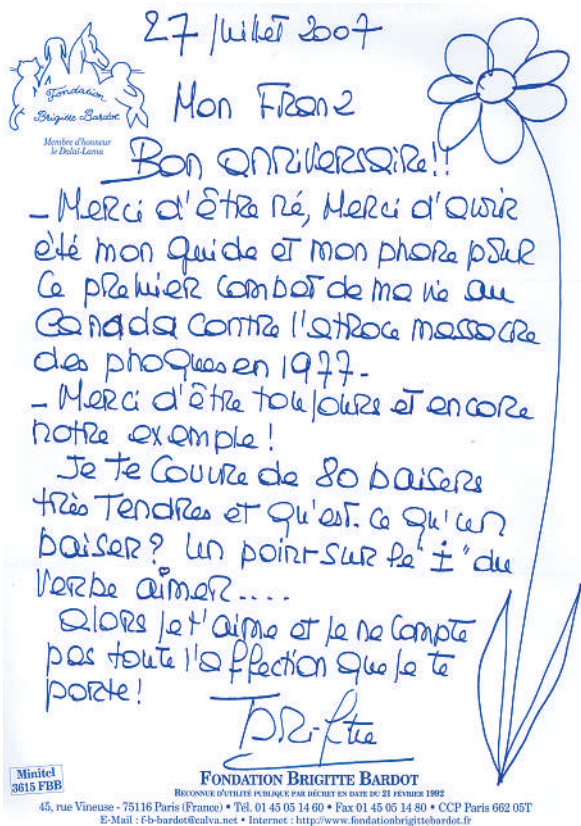 27 juillet 2007
Fondation
Brigitte Bardot
Membre d'honneur
le Dalaï-Lama
Mon Franz
Bon anniversaire!!
- Merci d'être né, Merci d'avoir
été mon guide et mon phare pour
ce premier combat de ma vie au
Canada contre l'atroce massacre
des phoques en 1977-
- Merci d'être toujours et encore
notre exemple!
Je te couvre de 80 baisers
très tendres et qu'est-ce qu'un
baiser? un point sur le "i" du
verbe aimer....
alors je t'aime et je ne compte
pas toute l'affection que je te
porte!
Brigitte
Minitel
3615 FBB
FONDATION BRIGITTE BARDOT
RECONNUE D'UTILITÉ PUBLIQUE PAR DÉCRET EN DATE DU 21 FÉVRIER 1992
45, rue Vineuse - 75116 Paris (France) • Tél. 01 45 05 14 60 • Fax 01 45 05 14 80 • CCP Paris 662 05T
E-Mail : f-b-bardot@calva.net • Internet : http://www.fondationbrigittebardot.fr